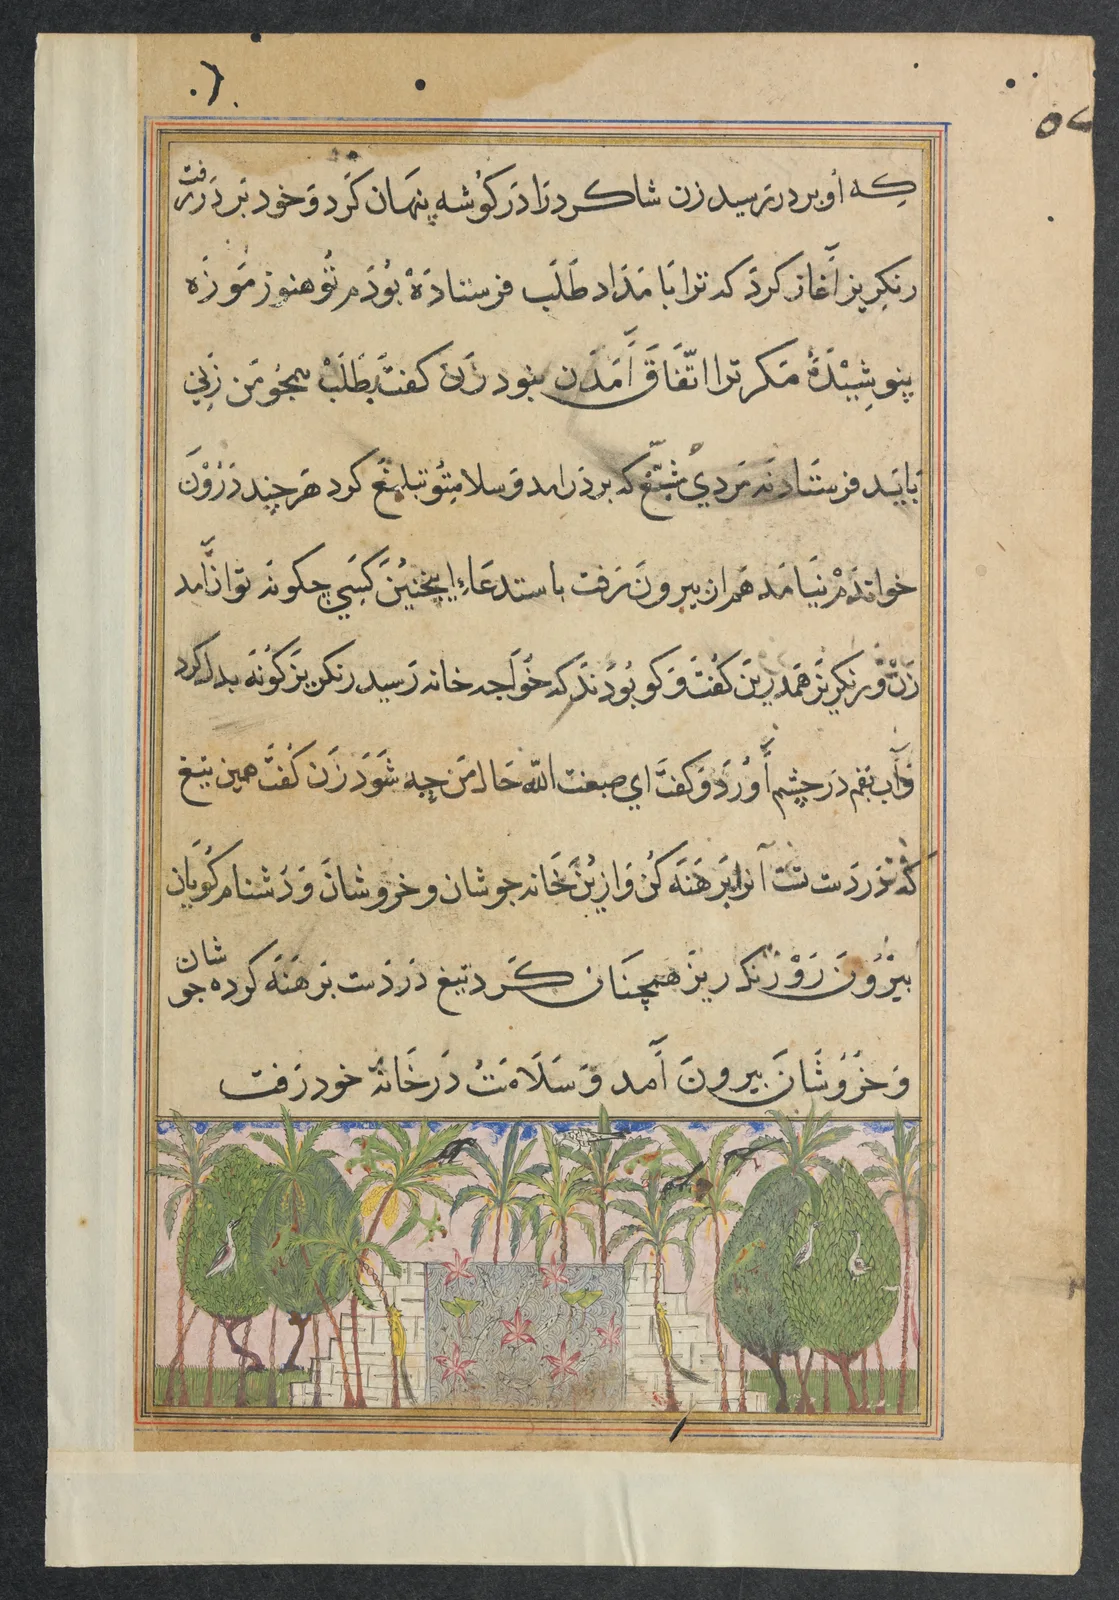 که او بر در رسید زن شاکرد را در کوشه پنهان کرد و خود بر در رفت
رنکریز آغاز کرد که ترا بامداد طلب فرستاده بودم تو هنوز موزه
پنوشیدهٔ مکر ترا اتفاق آمدن نبود زن کفت بطلب همچو من زنی
باید فرستاد نه مردی که بر در امد و سلام تو تبلیغ کرد هر چند درون
خواندم نیامد هم از بیرون برفت باستدعاء اینچنین کسی چکونه توان آمد
زن و رنکریز همدرین کفت و کو بودند که خواجه خانه رسید رنکریز کونه بدل کرد
و آب بقم در چشم آورد و کفت ای صبغت الله حال من چه شود زن کفت همین تیغ
که در دست تست آنرا برهنه کن و ازین خانه جوشان و خروشان و دشنام کویان
بیرون رو رنکریز همچنان کرد تیغ در دست برهنه کرده جوشان
و خروشان بیرون آمد و سلامت در خانهٔ خود رفت